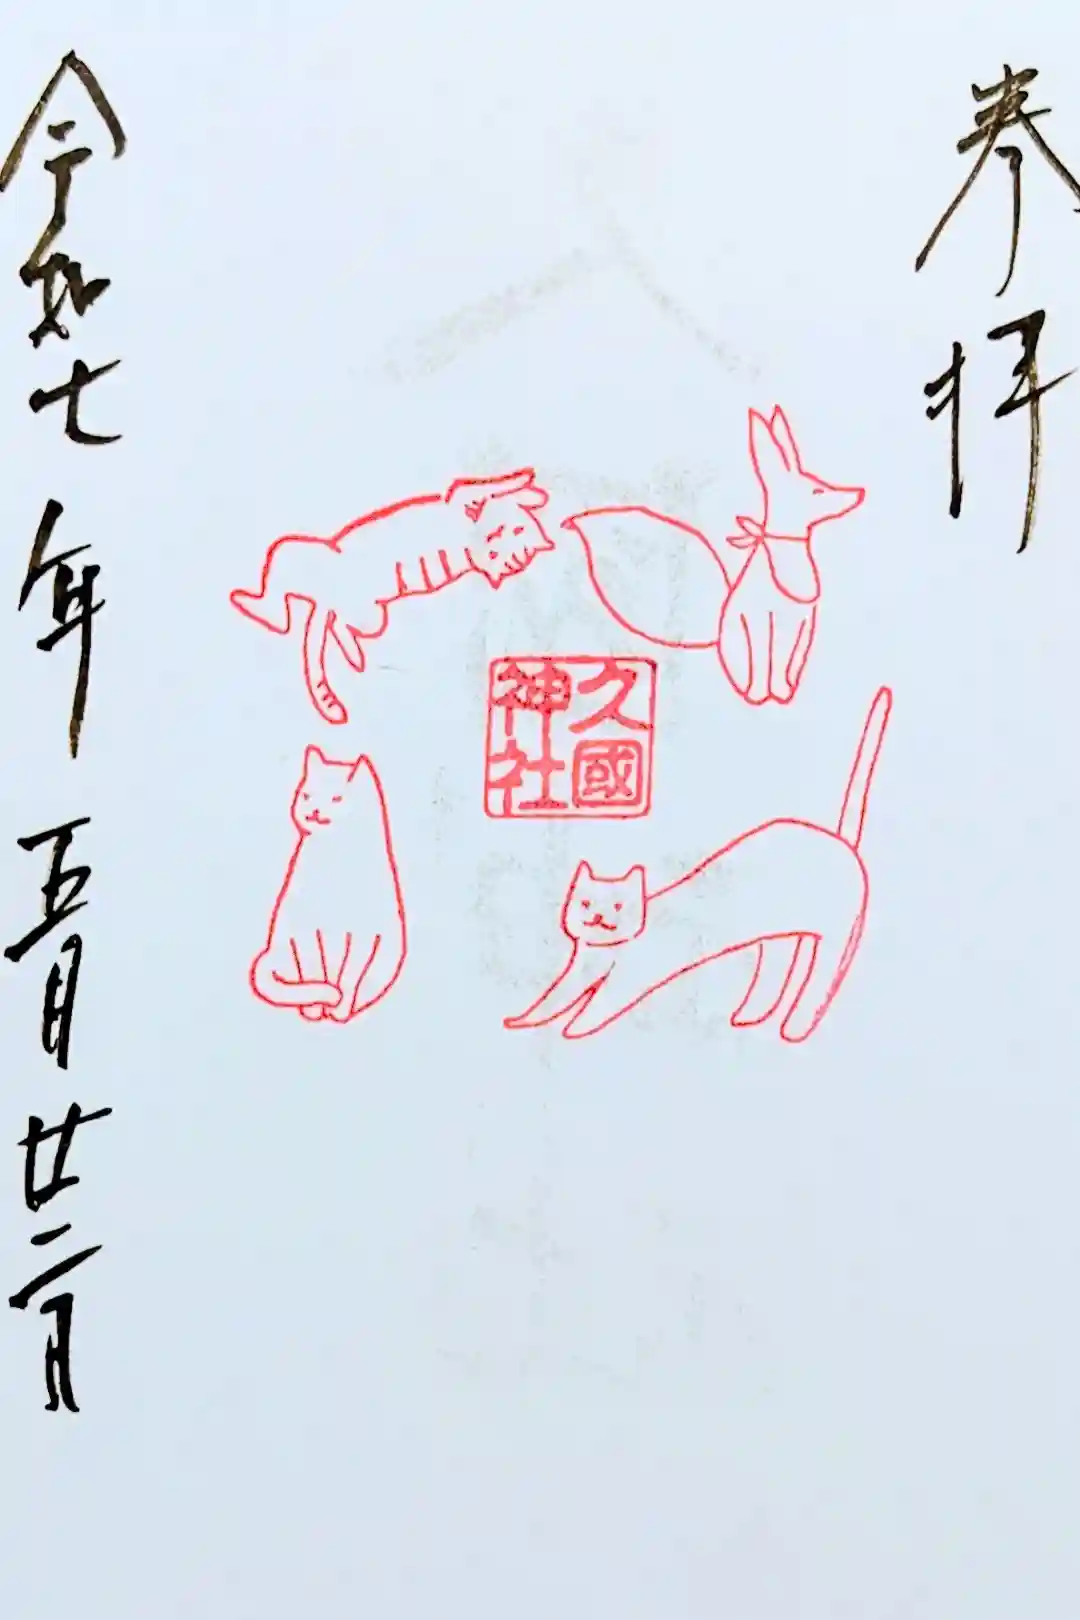 奉拝
久國
神社
令和七年五月廿二日